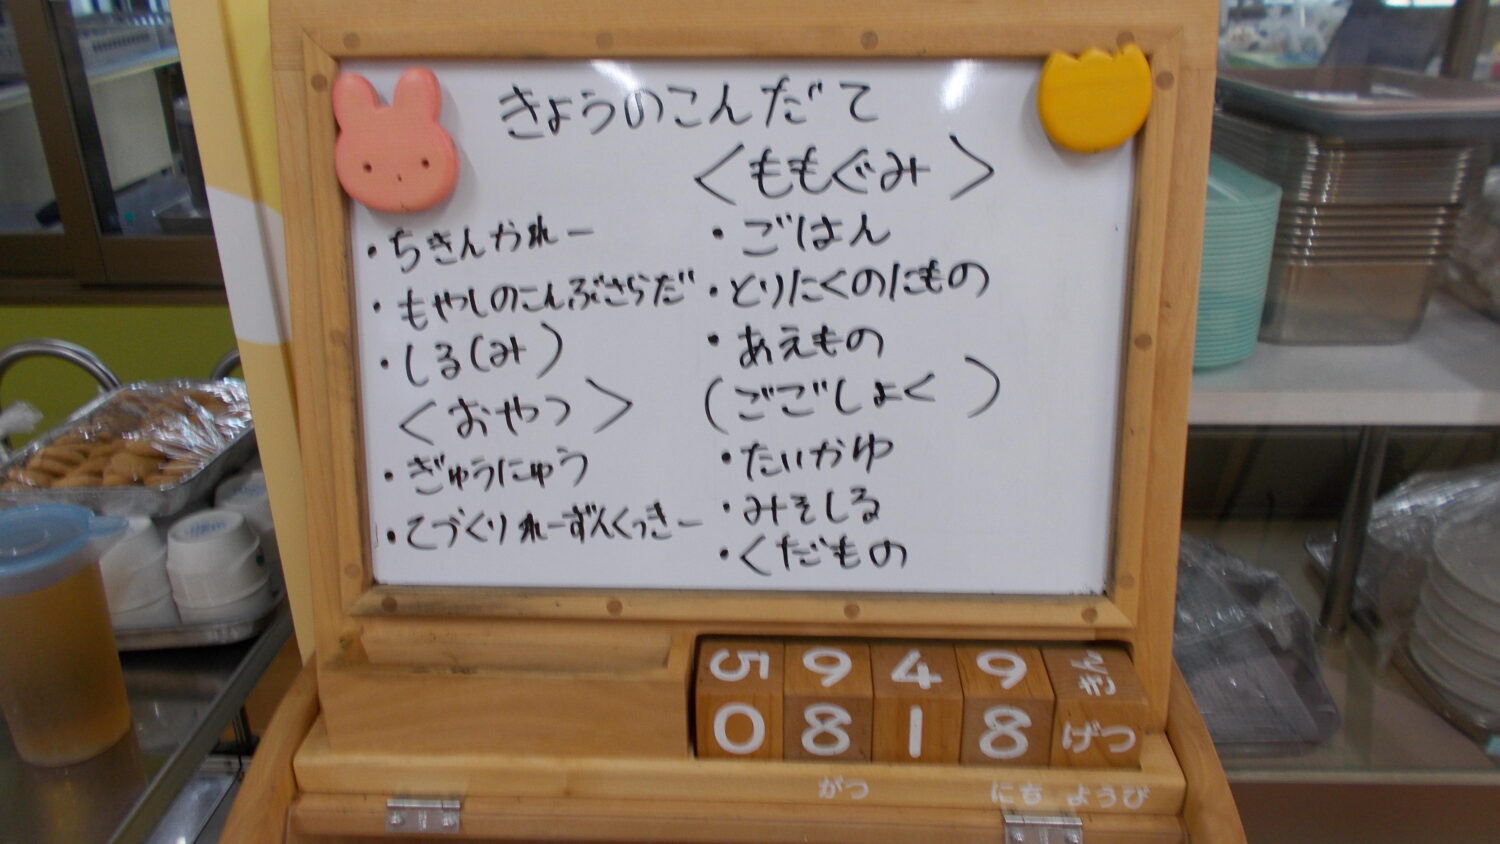 きょうのこんだて
・ちきんかれー
・もやしのこんぶさらだ
・しる(み)
<おやつ>
・ぎゅうにゅう
・てづくりれーずんくっきー
<ももぐみ>
・ごはん
・とりにくのにもの
・あえもの
(ごごしょく)
・たいかゆ
・みそしる
・くだもの
5 9 4 9 きん
0 8 1 8 げつ
がつ にち ようび